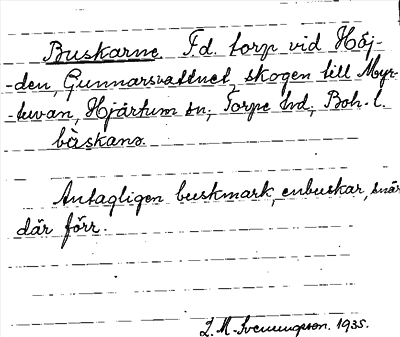 Buskarne. Fd. torp vid Höj-
-den, Gunnarsvattnet, skogen till Myr-
-tuvan, Hjärtum sn, Torpe hd, Boh. l.
bùskana.
Antagligen buskmark, enbuskar, snår
där förr.
L. M. Svenungsson. 1935.